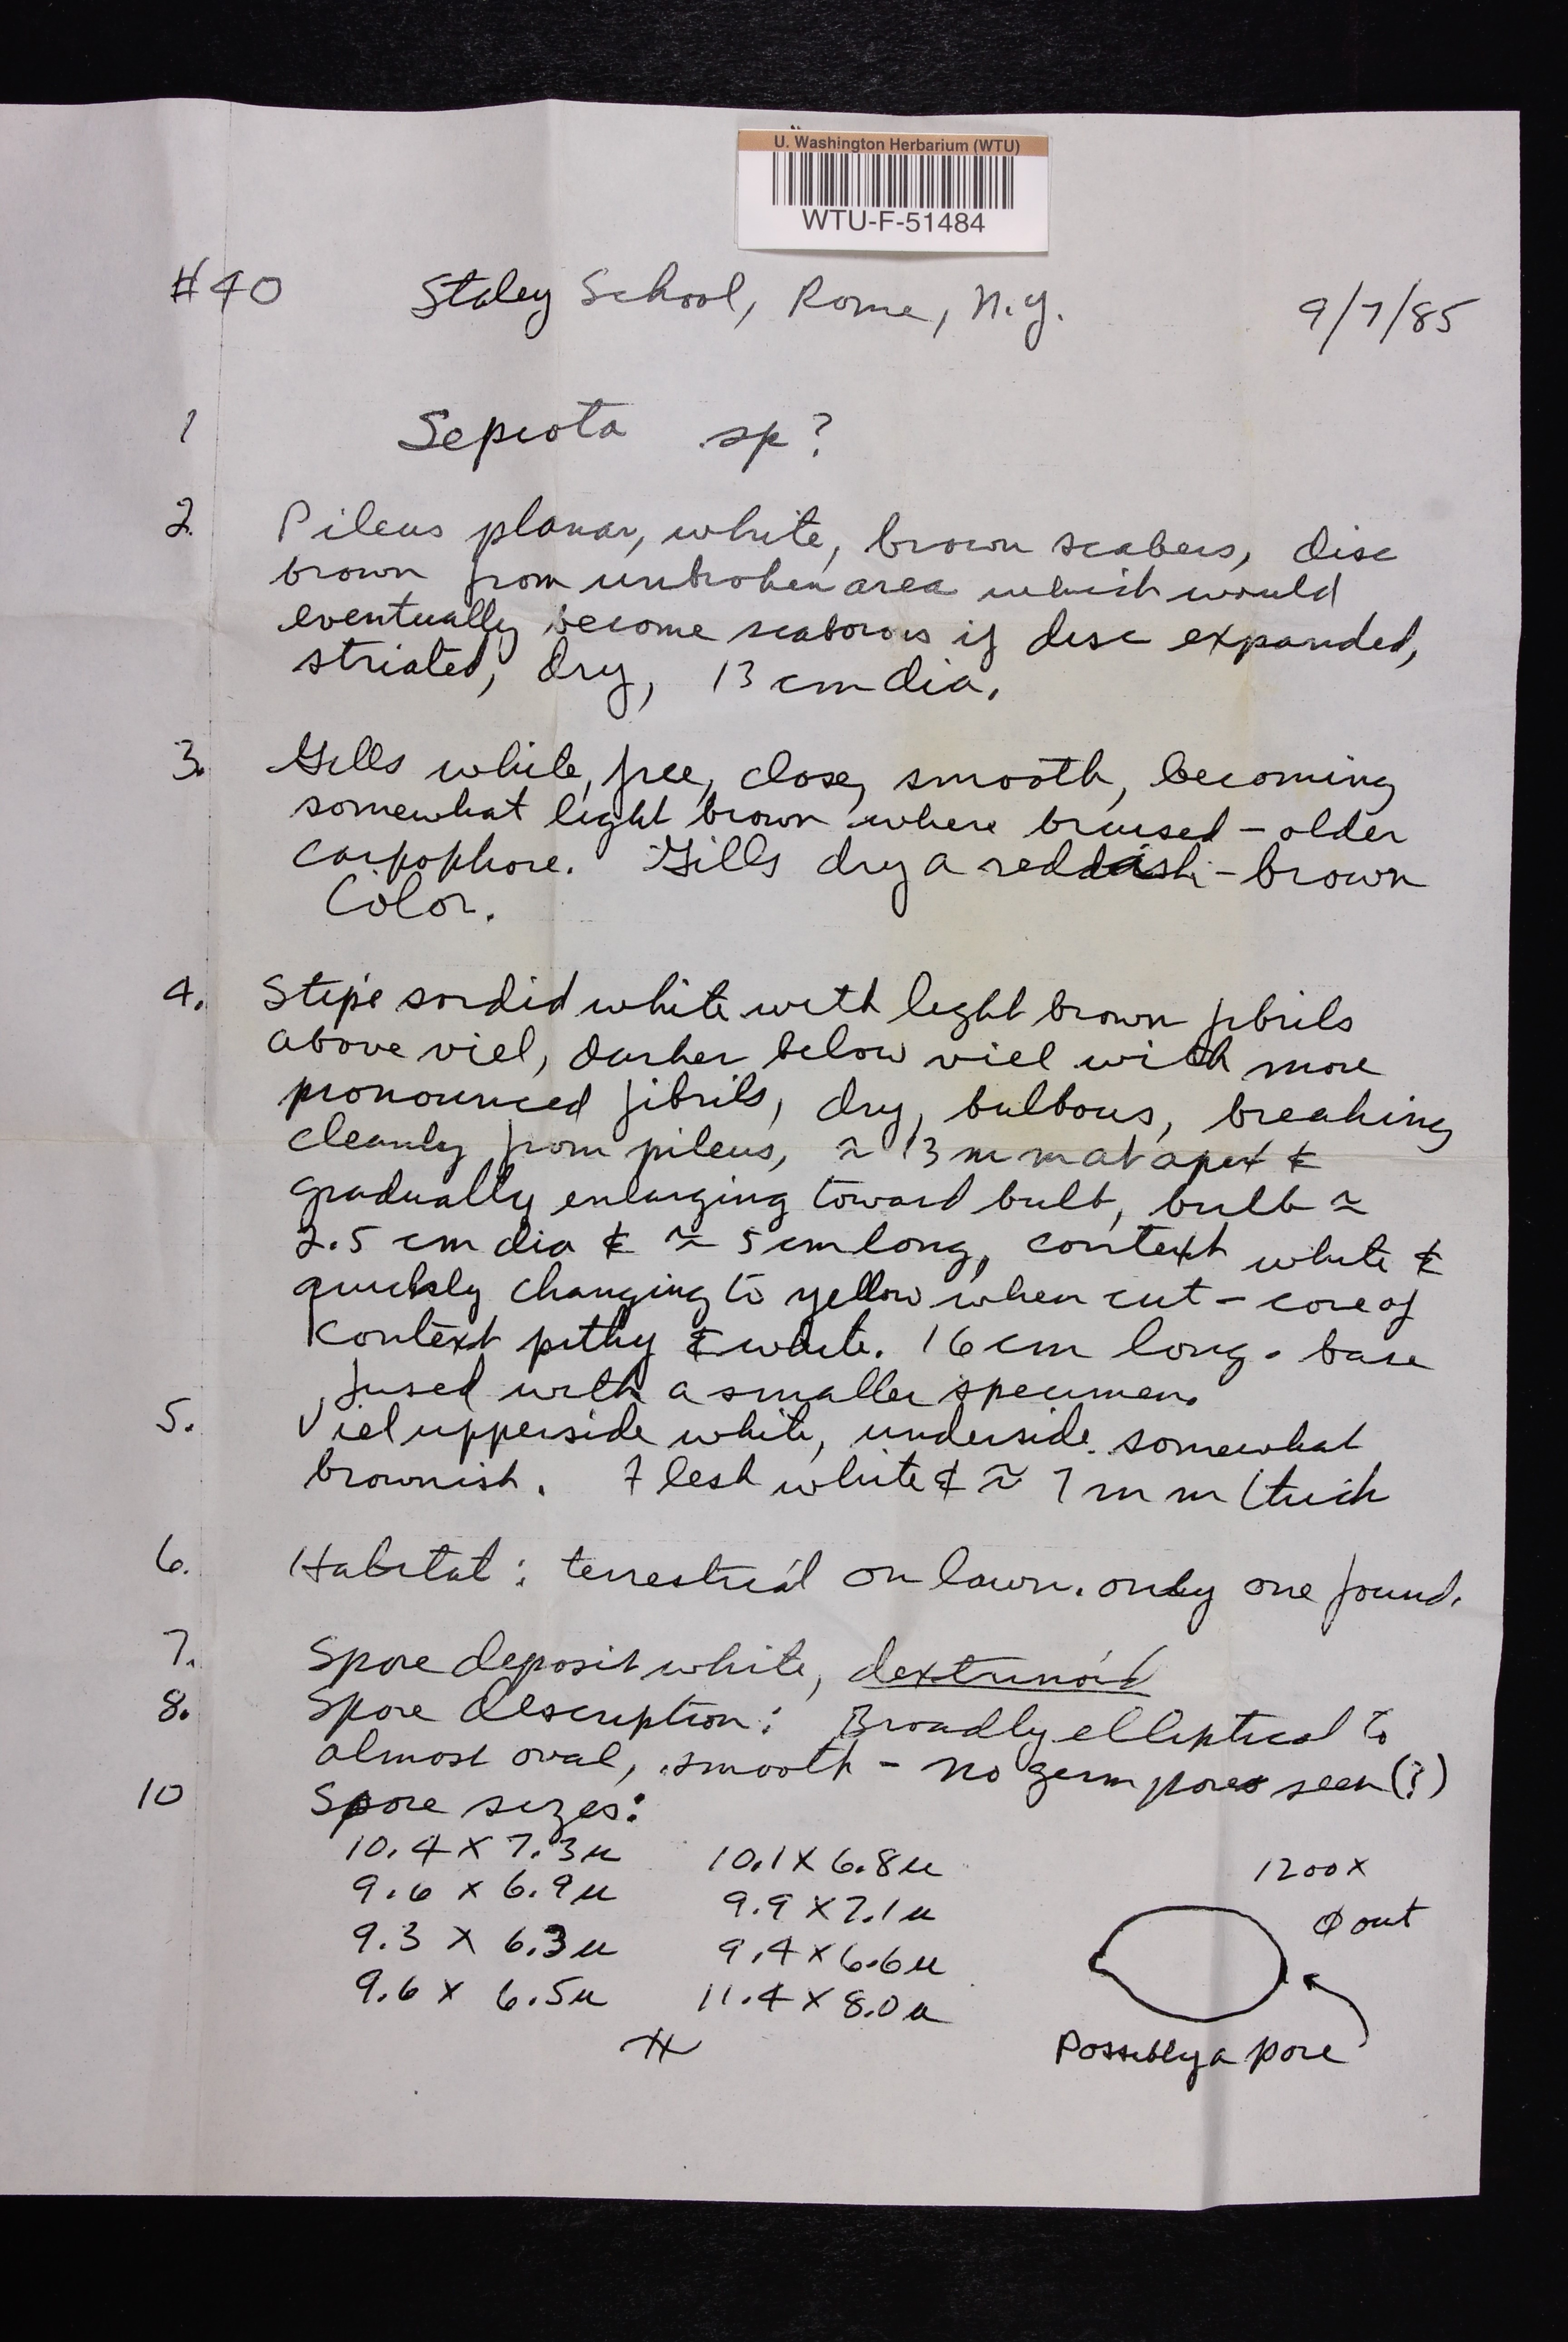 U. Washington Herbarium (WTU)
WTU-F-51484
#40 Staley School, Rome, N.Y. 9/7/85
1 Lepiota sp?
2. Pileus planar, white, brown scabers, disc
brown from unbroken area which would
eventually become scabrous if disc expanded,
striated, dry, 13 cm dia.
3. Gills white, free, close, smooth, becoming
somewhat light brown where bruised - older
carpophore. Gills dry a reddish-brown
color.
4. Stipe sordid white with light brown fibrils
above viel, darker below viel with more
pronounced fibrils, dry, bulbous, breaking
cleanly from pileus, ≈ 13 mm at apex &
gradually enlarging toward bulb, bulb ≈
2.5 cm dia & ≈ 5 cm long, context white &
quickly changing to yellow when cut - core of
context pithy & white. 16 cm long. base
fused with a smaller specimen.
5. Viel upperside white, underside somewhat
brownish. Flesh white & ≈ 7 mm thick
6. Habitat: terrestrial on lawn. only one found.
7. Spore deposit white, dextrinoid
8. Spore description: Broadly elliptical to
almost oval, smooth - no germ pores seen (?)
10 Spore sizes:
10.4 X 7.3u 10.1 X 6.8u
9.6 X 6.9u 9.9 X 7.1u
9.3 X 6.3u 9.4 X 6.6u
9.6 X 6.5u 11.4 X 8.0u
1200x
Φ out
Possibly a pore